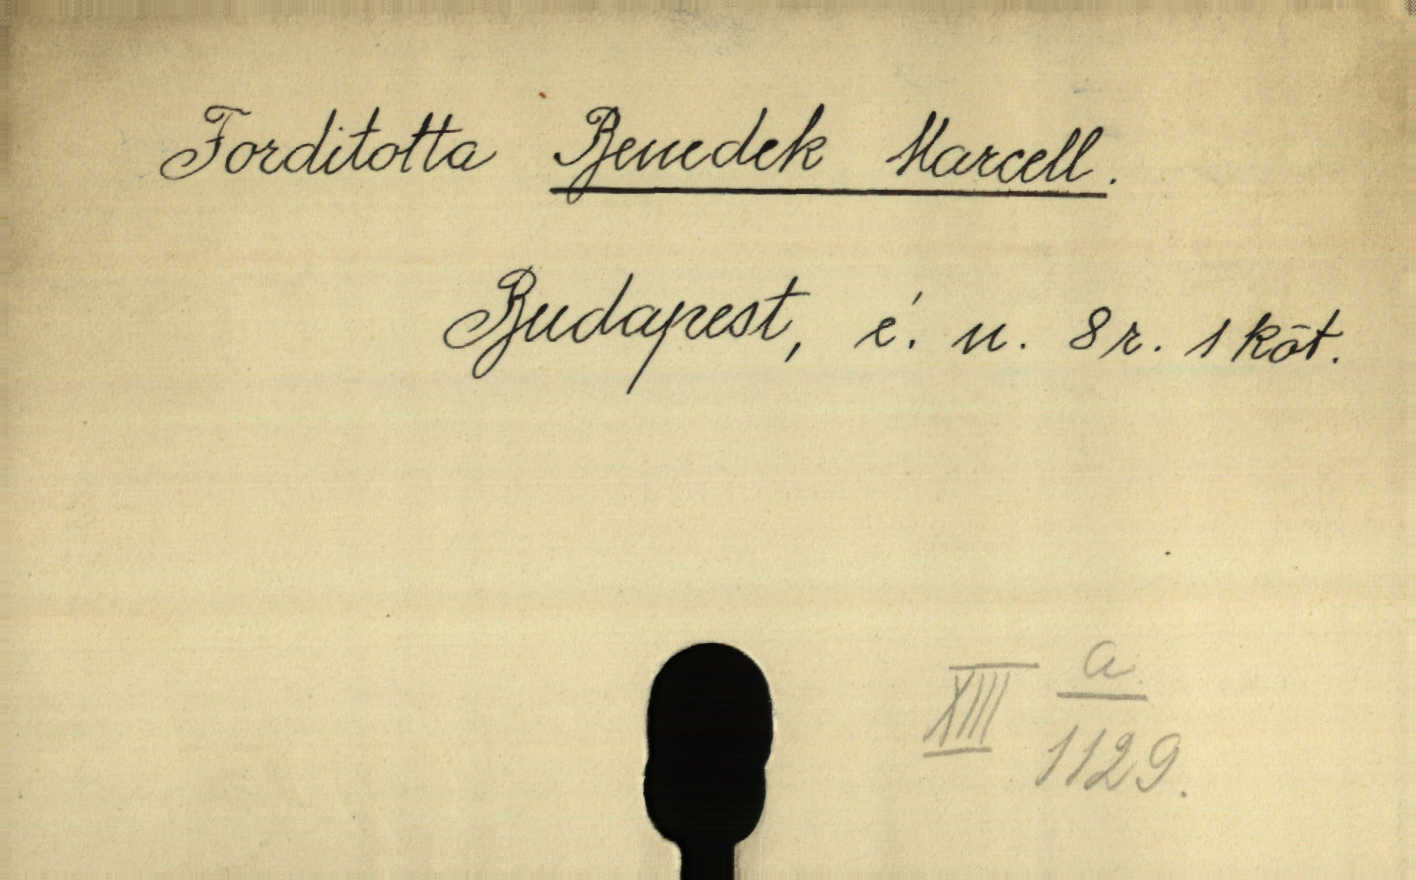 Forditotta Benedek Marcell.
Budapest, é. n. 8r. 1 köt.
XIII a
1129.